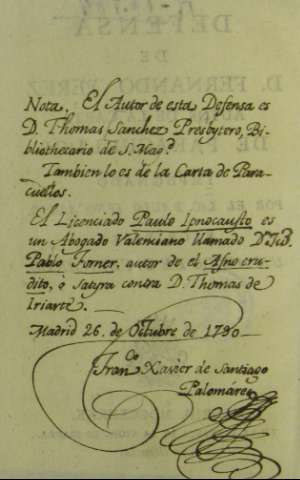 Nota. El Autor de esta Defensa es
D. Thomas Sanchez Presbytero, Bi-
bliothecario de S. Mag.d
Tambien lo es de la Carta de Para-
cuellos.
El Licenciado Paulo Ipnocausto es
un Abogado Valenciano llamado Dn.
Pablo Forner, autor de el Asno eru-
dito, ó Satyra contra D. Thomas de
Iriarte.
Madrid 26. de Octubre de 1790
Fran.co Xavier de Santiago
Palomáres